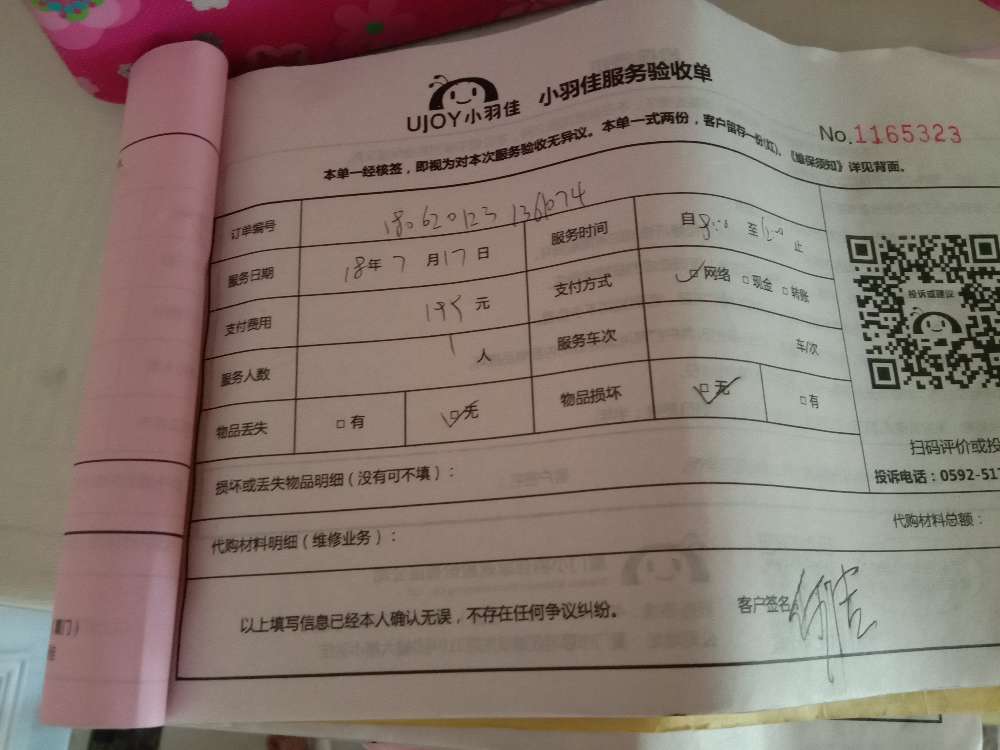 UJOY小羽佳 小羽佳服务验收单
No.1165323
本单一经核签，即视为对本次服务验收无异议。本单一式两份，客户留存一份(红)。《维保须知》详见背面。
订单编号
服务日期 18年7月17日 服务时间 自8:00至12:00止
支付费用 195元 支付方式 □网络 □现金 □转账
服务人数 1人 服务车次 车/次
物品丢失 □有 □无 物品损坏 □无 □有
投诉或建议
扫码评价或投
损坏或丢失物品明细（没有可不填）：
投诉电话：0592-511
代购材料明细（维修业务）：
代购材料总额：
以上填写信息已经本人确认无误，不存在任何争议纠纷。
客户签名：